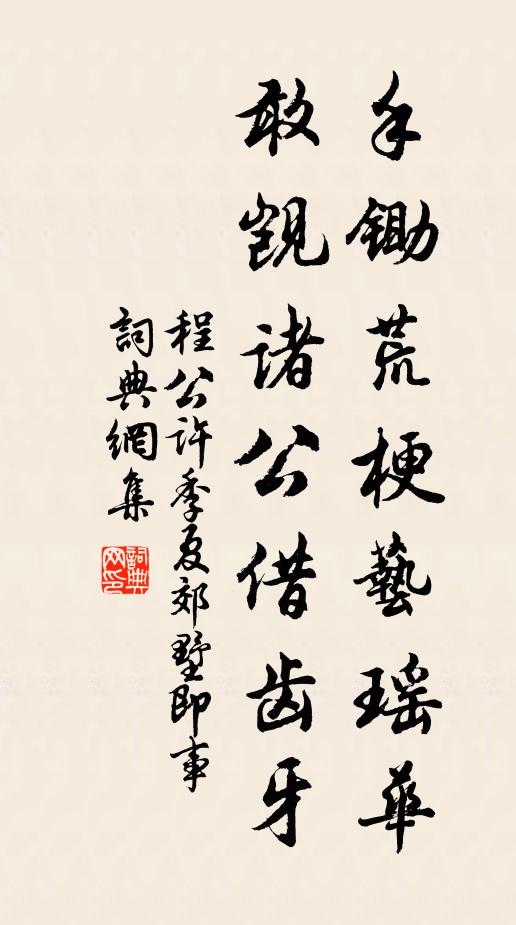 手鋤荒梗藝瑤華
敢覬諸公借齿牙
程公许季夏郊墅即事
詞典網集
詞典网印